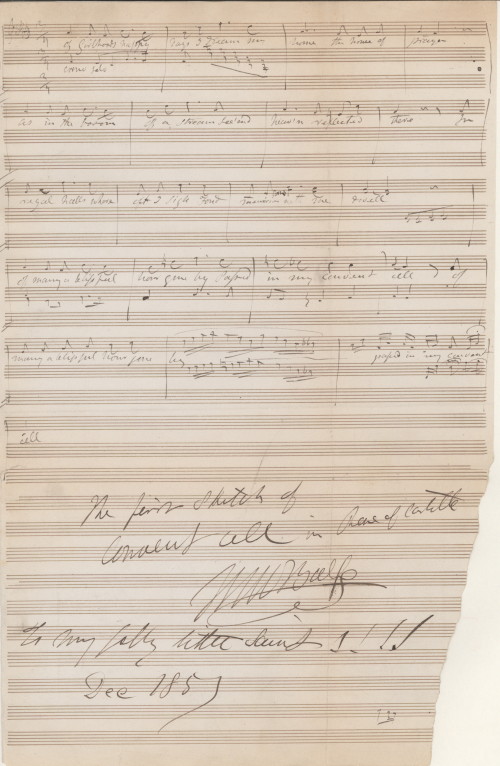 of Girlhoods happy days I dream in mine the hour of prayer
com'
as in the bosom of a stream
heav'n reflected there In
regal halls where
I sigh
dwell
of many a blissful hour gone by passed in my convent cell of
many a blissful hour gone by passed in my convent
cell
The first sketch of
Convent cell in Rose of Castille
MWBalfe
to my jolly little
!!!!
Dec 1857